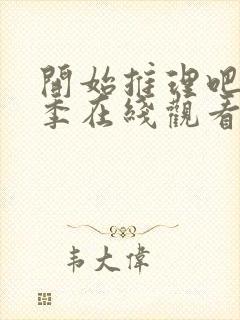 開始推理吧
季在綫觀看
韦大偉